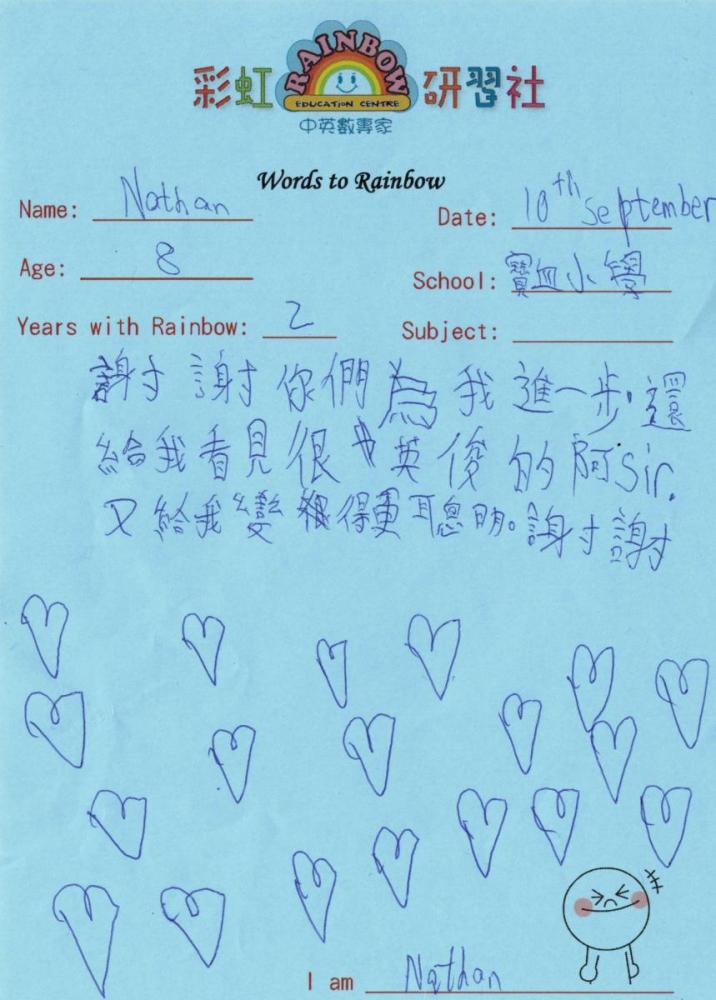 彩虹 RAINBOW 研習社
EDUCATION CENTRE
中英數專家
Words to Rainbow
Name: Nathan
Date: 10th September
Age: 8
School: 寶血小學
Years with Rainbow: 2
Subject:
謝謝你們為我進一步,還
給我看見很英俊的阿sir.
又給我變得更聰明。謝謝
I am Nathan